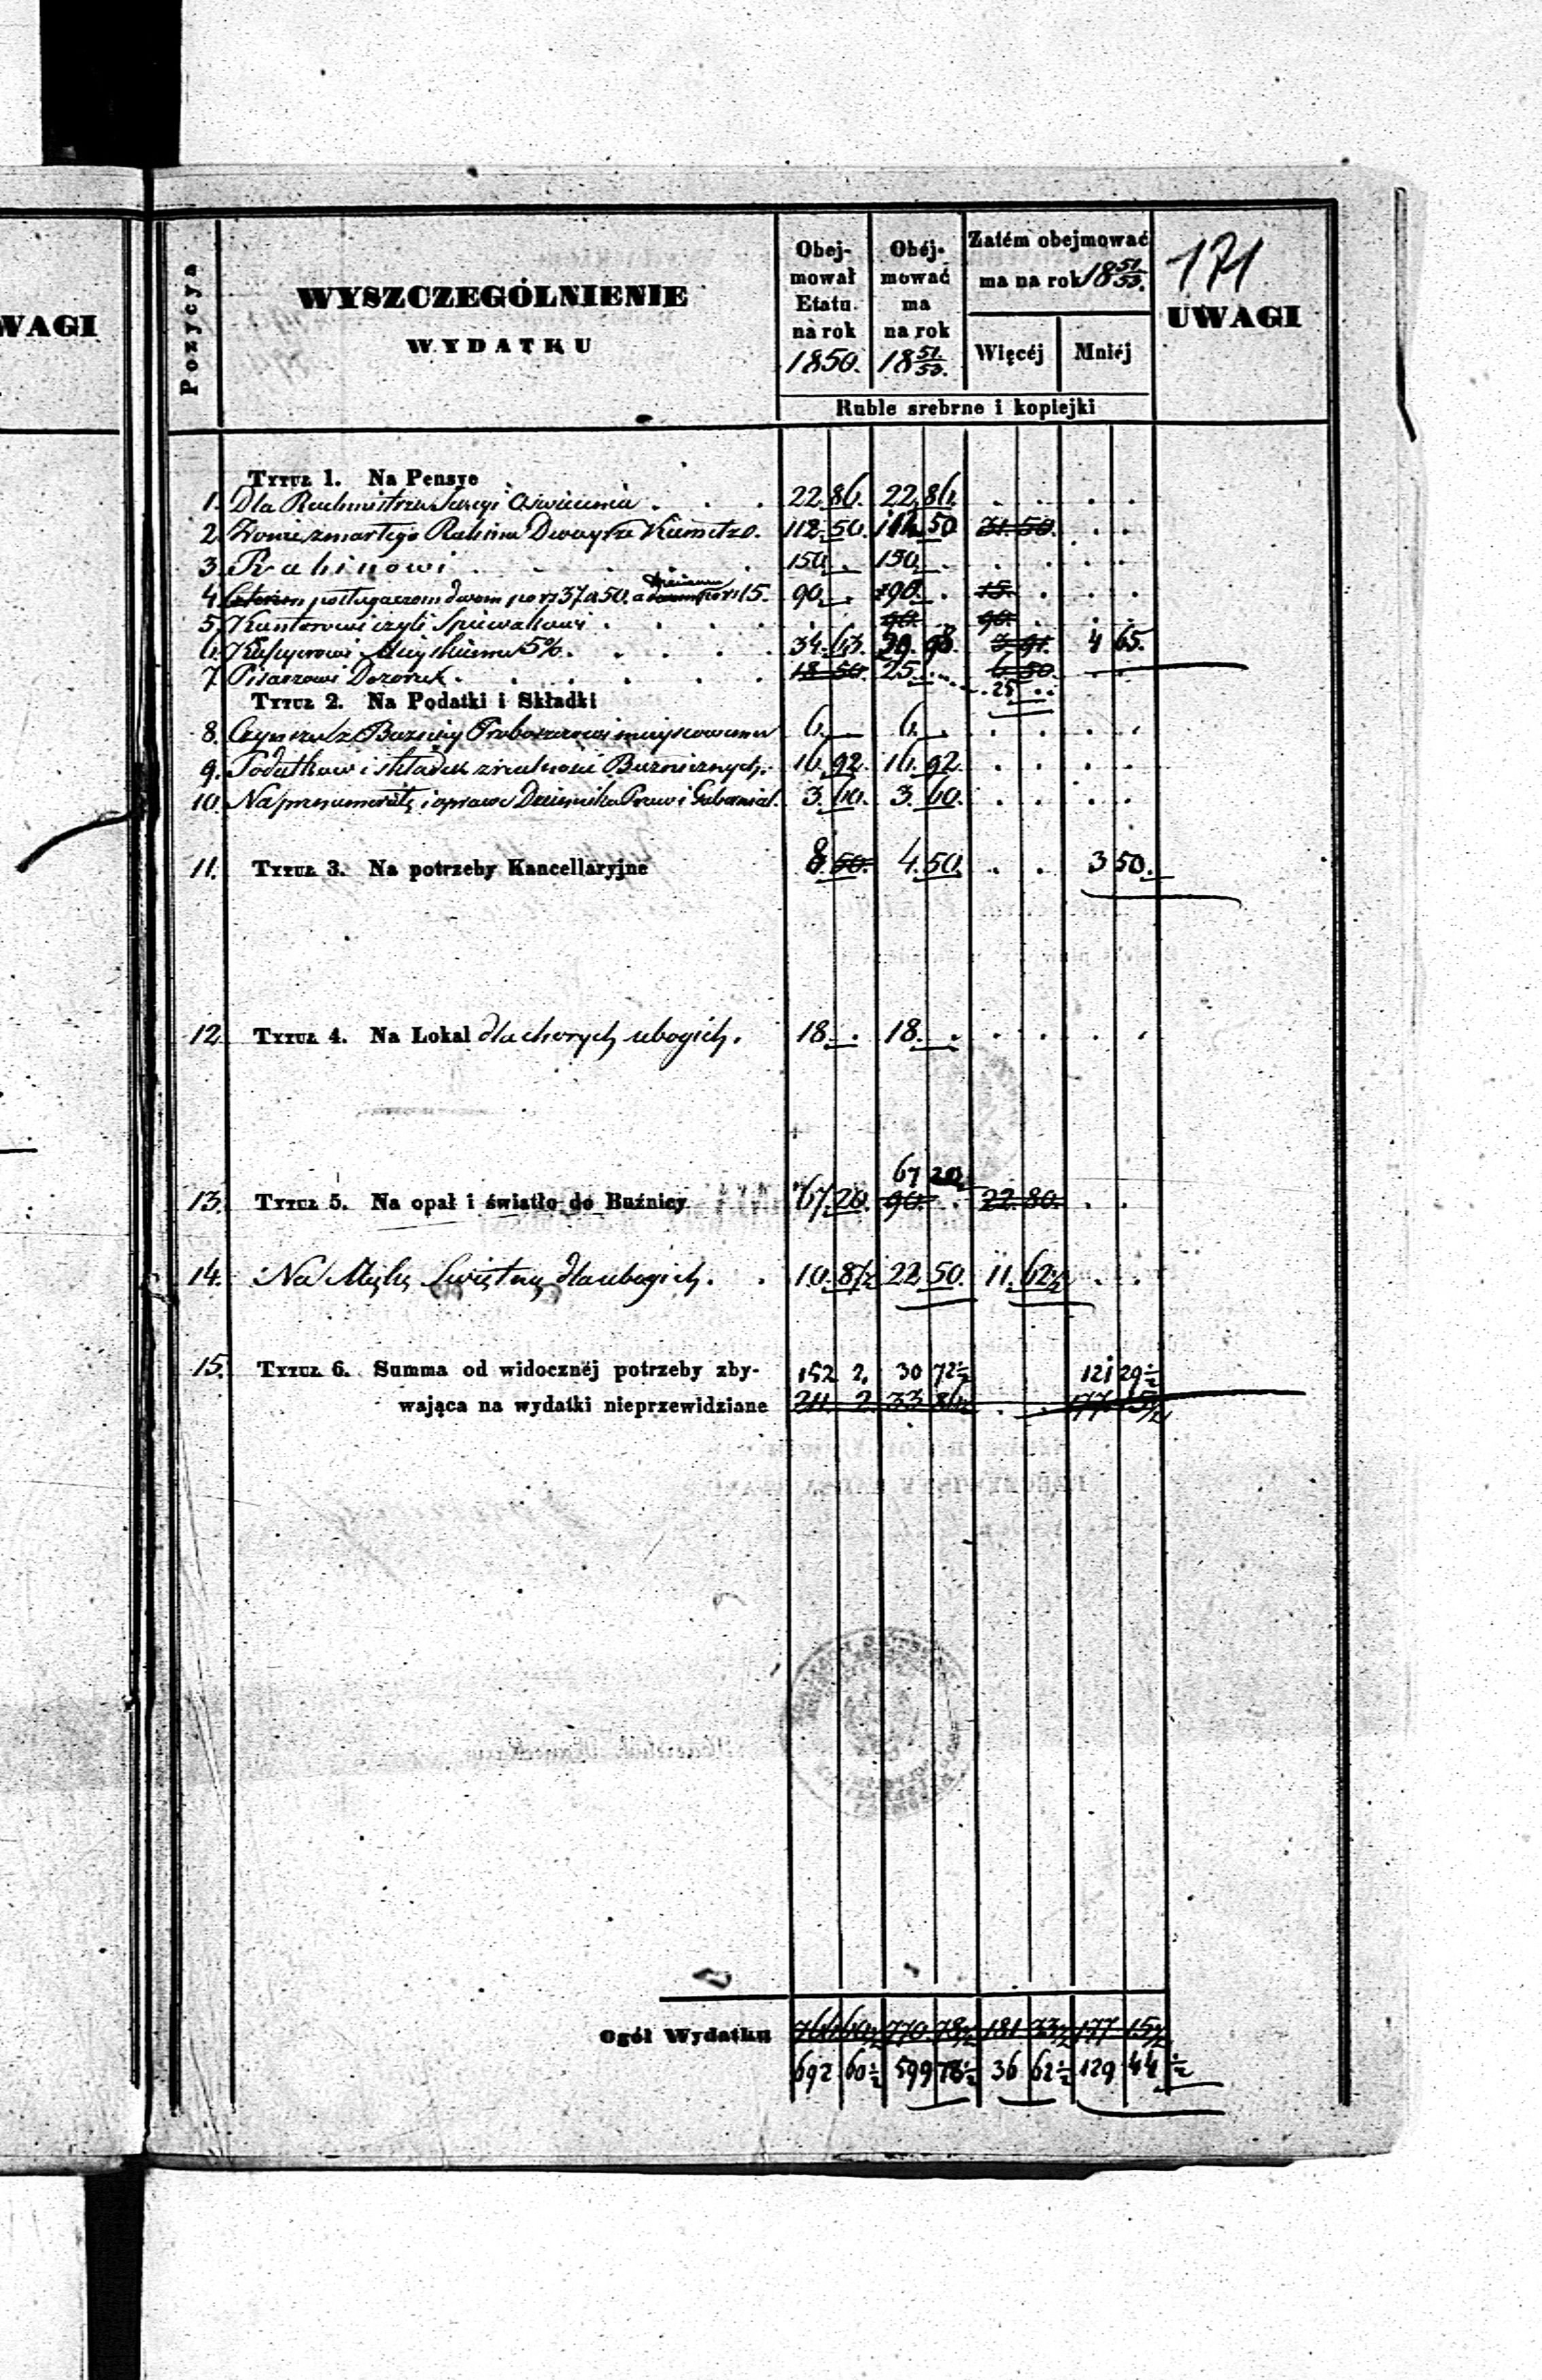 WAGI
Pozycya
WYSZCZEGÓLNIENIE
WYDATKU
Obej-
mował
Etatu
na rok
1850.
Obéj-
mować
ma
na rok
18 51/53.
Zatém obejmować
ma na rok 18 51/53.
Więcéj Mniéj
171
UWAGI
Ruble srebrne i kopiejki
Tytuł 1. Na Pensye
1. Dla Rachmistrza Sekcyi . . . 22. 86. 22. 86. . . . .
2. Żonie zmartego Rabina 112. 50. 112 50 31 50. . .
3. Rabinowi . . . . . 150. . 150. . . . . .
4. posługaczom dwom po rs 37 k 50. a po rs 15. 90. . 90. . 15. . . .
5. Kantorowi czyli Spiewakowi . . . . . . 90. . 90. . . .
6. Kassyerowi Mieyskiemu 5%. . . . . 34. 63. 98. 3. 91. 4 65.
7. Pisarzowi Dozoru . . . . . 18 50. 25. . 6 50
25 . .
Tytuł 2. Na Podatki i Składki
8. Czynszu z Buźnicy Proboszczowi mieyscowemu 6. — 6. . . . . .
9. Podatków i składek z realności Buźnicznych. 16. 92. 16. 92. . . . .
10. Na prenumeratę i oprawę Dziennika Praw i Gubernial. 3. 60. 3. 60. . . . .
11. Tytuł 3. Na potrzeby Kancellaryjne 8 50. 4. 50. . . 3 50.
12. Tytuł 4. Na Lokal dla chorych ubogich. 18. . 18. . . . . .
67 20
13. Tytuł 5. Na opał i światło do Buźnicy 67. 20. 90. . 22. 80. . .
14. Na Mąkę Swiętną dla ubogich. . 10. 87½ 22. 50. 11. 62½ . .
15. Tytuł 6. Summa od widocznéj potrzeby zby- 152 2. 30 72½ 121 29½
wająca na wydatki nieprzewidziane 211. 2. 33. . . 177
Ogół Wydatku 770. 78½ 181 177 15½
692 60½ 599 78½ 36 62½ 129 44 ½